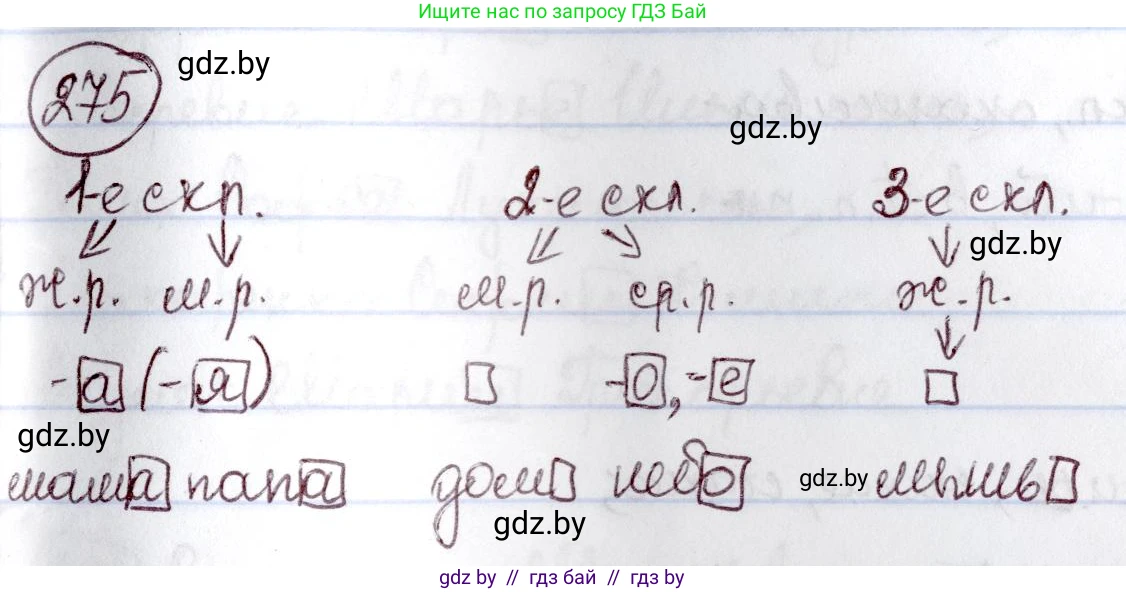 Ищите нас по запросу ГДЗ Бай
275 gdz.by
gdz.by
1-е скл. 2-е скл. 3-е скл.
gdz.by
ж.р. м.р. м.р. ср.р. ж.р.
-а (-я) -о, -е
gdz.by
мама папа дом небо gdz.by мышь
gdz.by
gdz by // гдз бай // gdz by